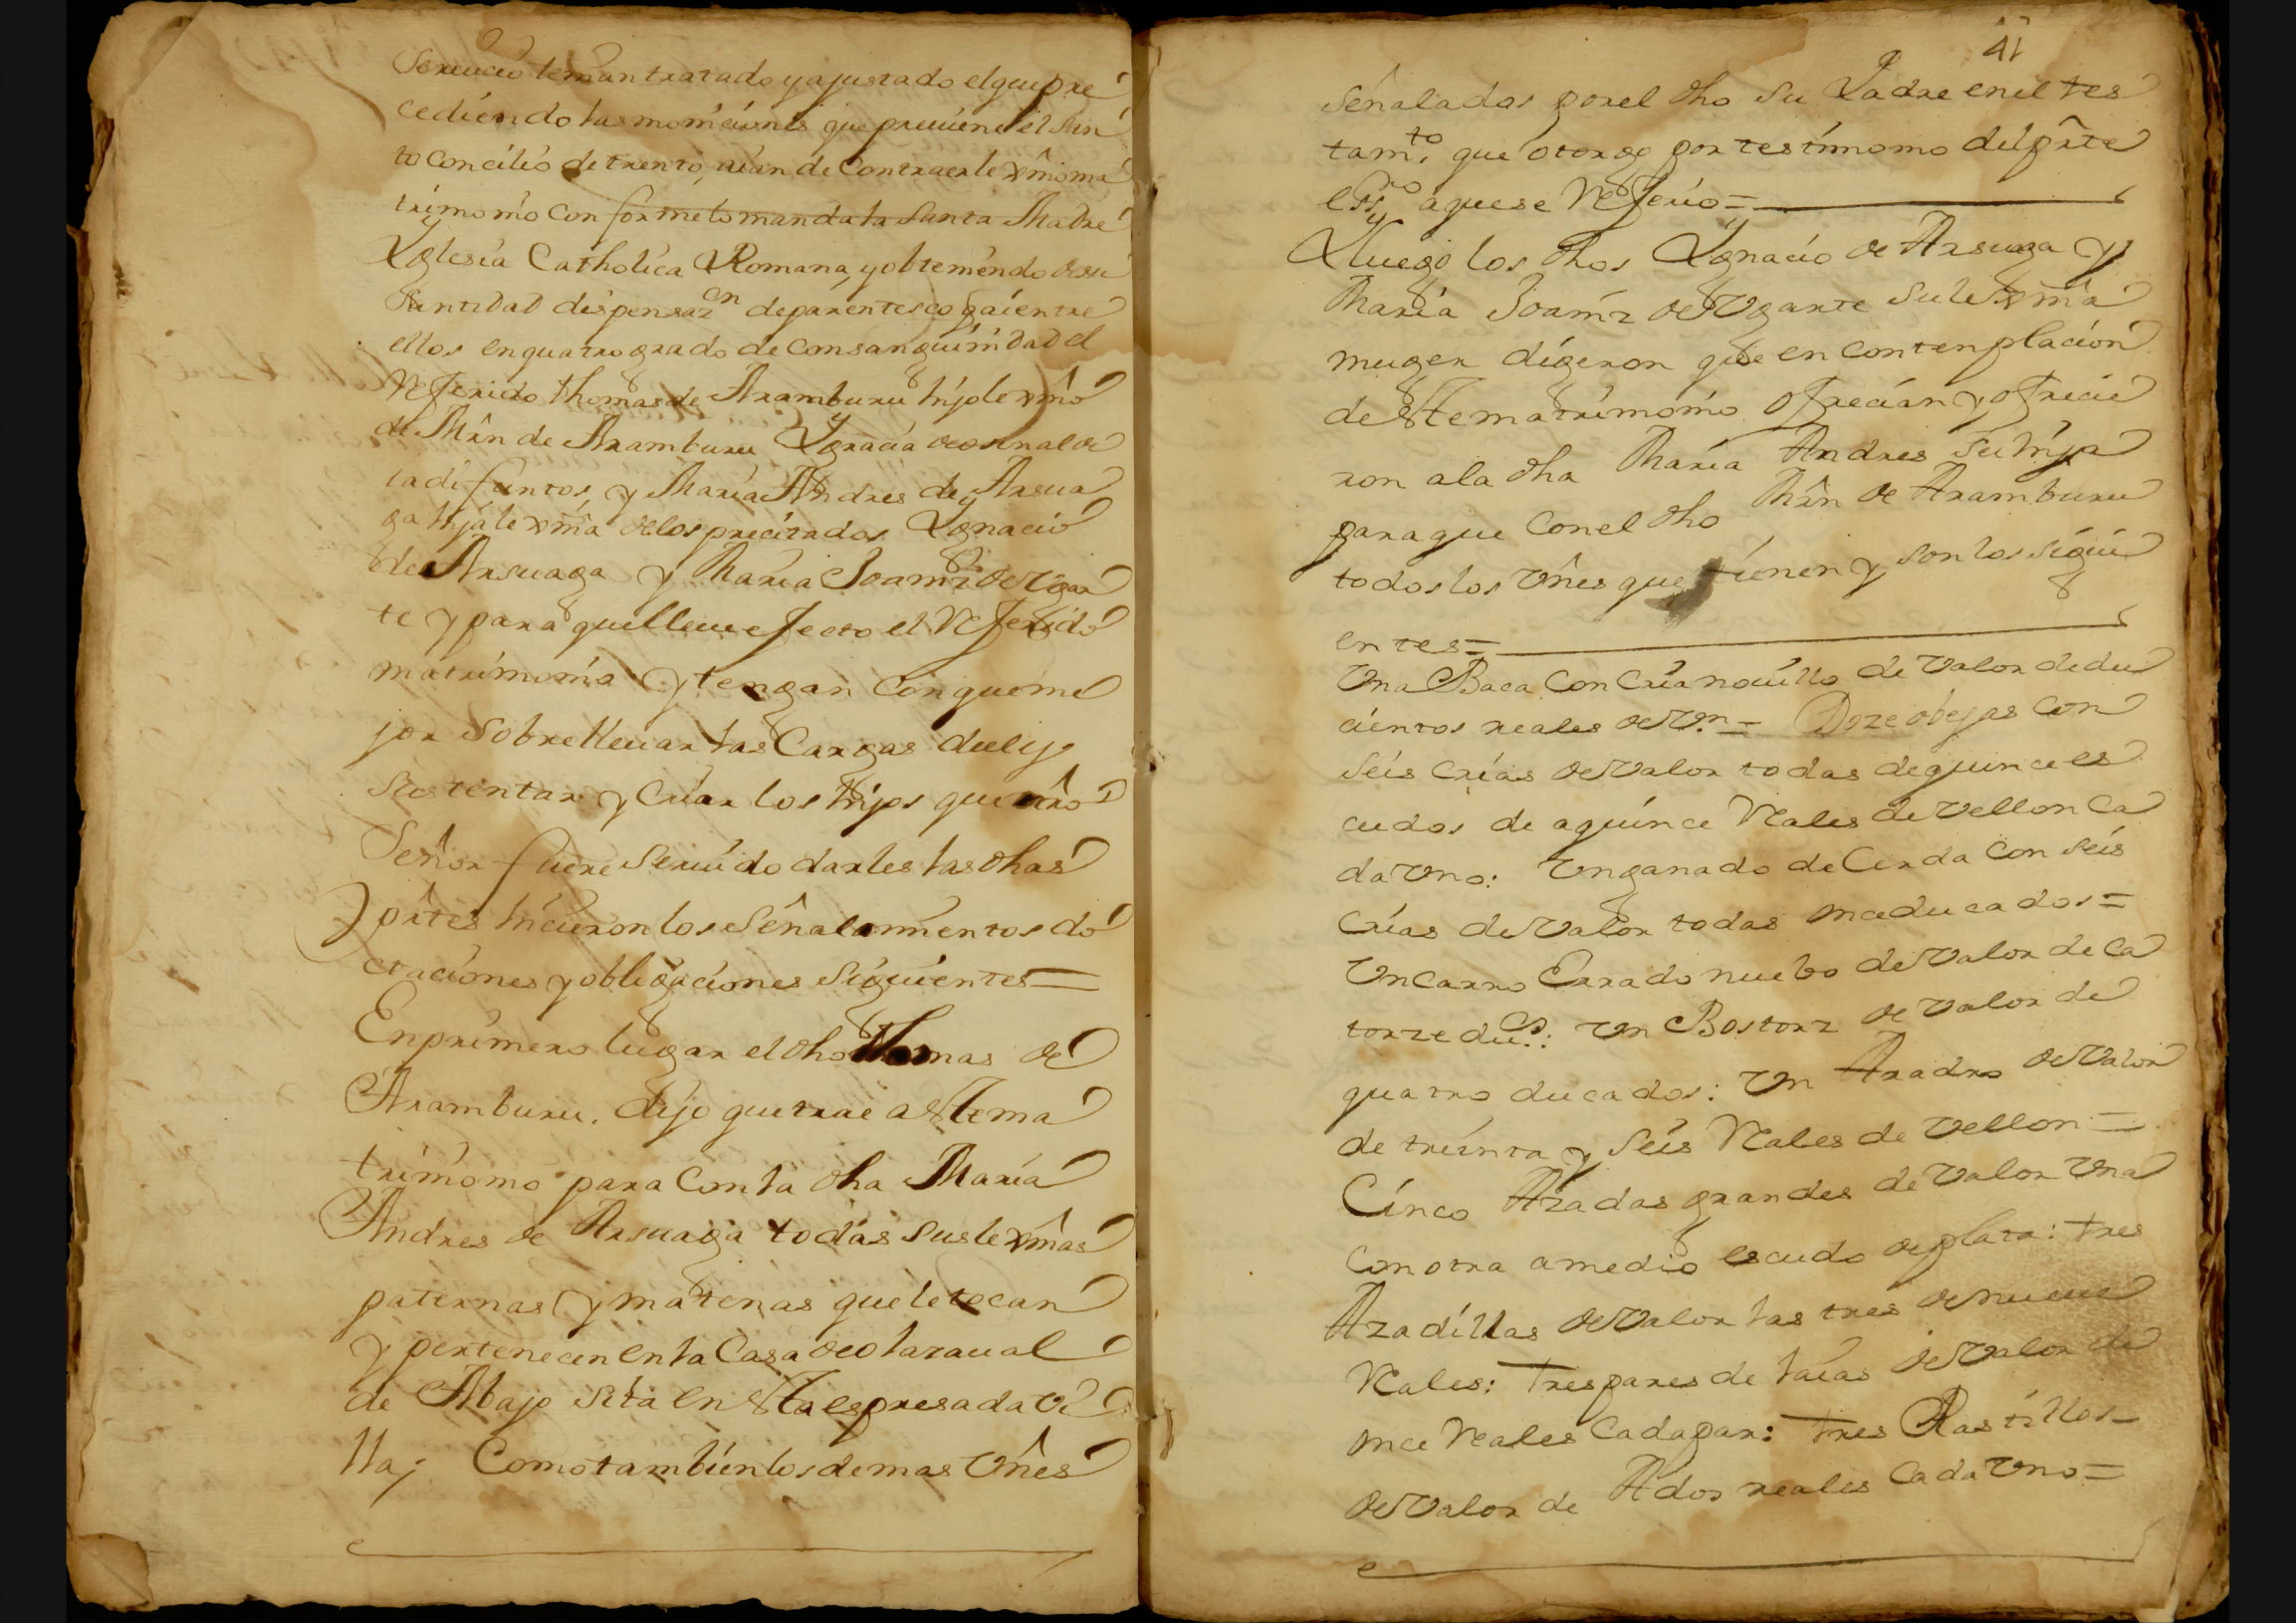 Seruicio tenian tratado y ajustado el que pre
cediendo las moniciones que preuiene el San
to Concilio de trento, aian de Contraer lexmo ma
trimonio Conforme lo manda la Santa Madre
Yglesia Catholica Romana, y obteniendo de su
Santidad dispensazon de parentesco q ai entre
ellos en quatro grado de Consanguinidad el
Referido thomas de Aramburu hijo lexmo
de Mrn de Aramburu Ygnacia de osinalde
ia difuntos, y Maria Andres de Arsua
ga hija lexma de los precitados Ygnacio
de Arsuaga y Maria Joaniz de Vgar
te y para que lleue efecto el Referido
matrimonio y tengan Con que me
jor Sobrelleuar las Cargas de el y
Sustentar y Criar los hijos que nro
Señor fuere Seruido darles las dhas
partes hicieron los Señalamientos do
ctaciones y obligaciones Siguientes =
En primero lugar el dho thomas de
Aramburu. dijo que trae a este ma
trimonio para Con la dha Maria
Andres de Arsuaga todas sus lexmas
paternas y maternas que le tocan
y pertenecen en la Casa de olazaual
de Abajo sita en esta espresada Vi
lla; Como tambien los demas Vnes
41
Señalados por el dho su Padre en el tes
tamto que otorgo por testimonio del prte
essno a que se Refirio =
Y luego los dhos Ygnacio de Arsuaga y
Maria Joaniz de Vgarte su lexma
muger digeron que en contenplacion
de este matrimonio ofrecian y ofrecie
ron a la dha Maria Andres su hija
para que con el dho Mrn de Aramburu
todos los Vnes que tienen y son los sigui
entes =
Una Baca Con Cria nouillo de Valor de du
cientos reales de Vn = Doze obejas Con
seis Crias de Valor todas de quince es
cudos de a quince Reales de vellon Ca
da Vno: Un ganado de Cerda Con seis
Crias de Valor todas once ducados =
Un Carro Errado nuebo de Valor de Ca
torze dus: Un Bostorz de Valor de
quatro ducados: Un Aradro de Valor
de treinta y seis Reales de vellon =
Cinco Azadas grandes de Valor Una
Con otra a medio escudo de plata: tres
Azadillas de Valor las tres de nueue
Reales: Tres pares de laias de Valor de
once Reales Cada par: Tres Rastillos
de Valor de A dos reales Cada Vno =